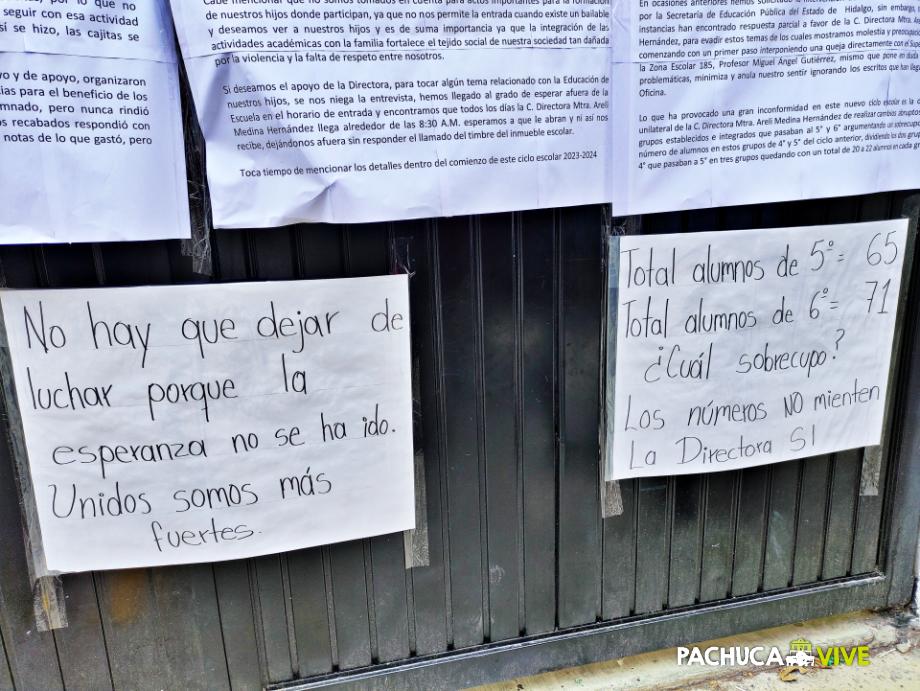 por lo que no
seguir con esa actividad
sí se hizo, las cajitas se
yo y de apoyo, organizaron
cias para el beneficio de los
mnado, pero nunca rindió
s recabados respondió con
notas de lo que gastó, pero
Cabe mencionar que no somos tomados en cuenta para actos importantes para la formación
de nuestros hijos donde participan, ya que no nos permite la entrada cuando existe un bailable
y deseamos ver a nuestros hijos y es de suma importancia ya que la integración de las
actividades académicas con la familia fortalece el tejido social de nuestra sociedad tan dañada
por la violencia y la falta de respeto entre nosotros.
Si deseamos el apoyo de la Directora, para tocar algún tema relacionado con la Educación de
nuestros hijos, se nos niega la entrevista, hemos llegado al grado de esperar afuera de la
Escuela en el horario de entrada y encontramos que todos los días la C. Directora Mtra. Areli
Medina Hernández llega alrededor de las 8:30 A.M. esperamos a que le abran y ni así nos
recibe, dejándonos afuera sin responder el llamado del timbre del inmueble escolar.
Toca tiempo de mencionar los detalles dentro del comienzo de este ciclo escolar 2023-2024
En ocasiones anteriores hemos
por la Secretaría de Educación Pública del Estado de Hidalgo, sin embargo,
instancias han encontrado respuesta parcial a favor de la C. Directora Mtra.
Hernández, para evadir estos temas de los cuales mostramos molestia y
comenzando con un primer paso interponiendo una queja directamente con el
la Zona Escolar 185, Profesor Miguel Ángel Gutiérrez, mismo que pone en
problemáticas, minimiza y anula nuestro sentir ignorando los escritos que han
Oficina.
Lo que ha provocado una gran inconformidad en este nuevo ciclo escolar es la
unilateral de la C. Directora Mtra. Areli Medina Hernández de realizar cambios abruptos
grupos establecidos e integrados que pasaban al 5° y 6° argumentando un sobrecupo
número de alumnos en estos grupos de 4° y 5° del ciclo anterior, dividiendo los dos
4° que pasaban a 5° en tres grupos quedando con un total de 20 a 22 alumnos en cada
No hay que dejar de
luchar porque la
esperanza no se ha ido.
Unidos somos más
fuertes.
Total alumnos de 5°= 65
Total alumnos de 6°= 71
¿Cuál sobrecupo?
Los números NO mienten
La Directora SI
PACHUCA VIVE